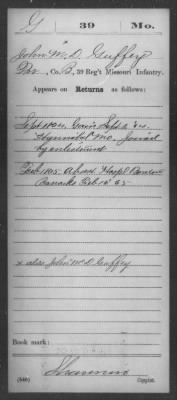 G | 39 | Mo.
John W. D. Guffey
Pvt., Co. B, 39 Reg't Missouri Infantry.
Appears on Returns as follows:
Sept 1864, Gain Sept 2 '64
Hannibal Mo. Joined
by enlistment
Feb 1865 Absent Hosp'l Benton
Barracks Feb 18 65
x alias John W. D. Guffey
Book mark:
(546)
Copyist.